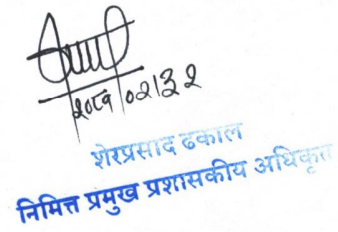 २०८१।०२।३२
शेरप्रसाद ढकाल
निमित्त प्रमुख प्रशासकीय अधिकृत